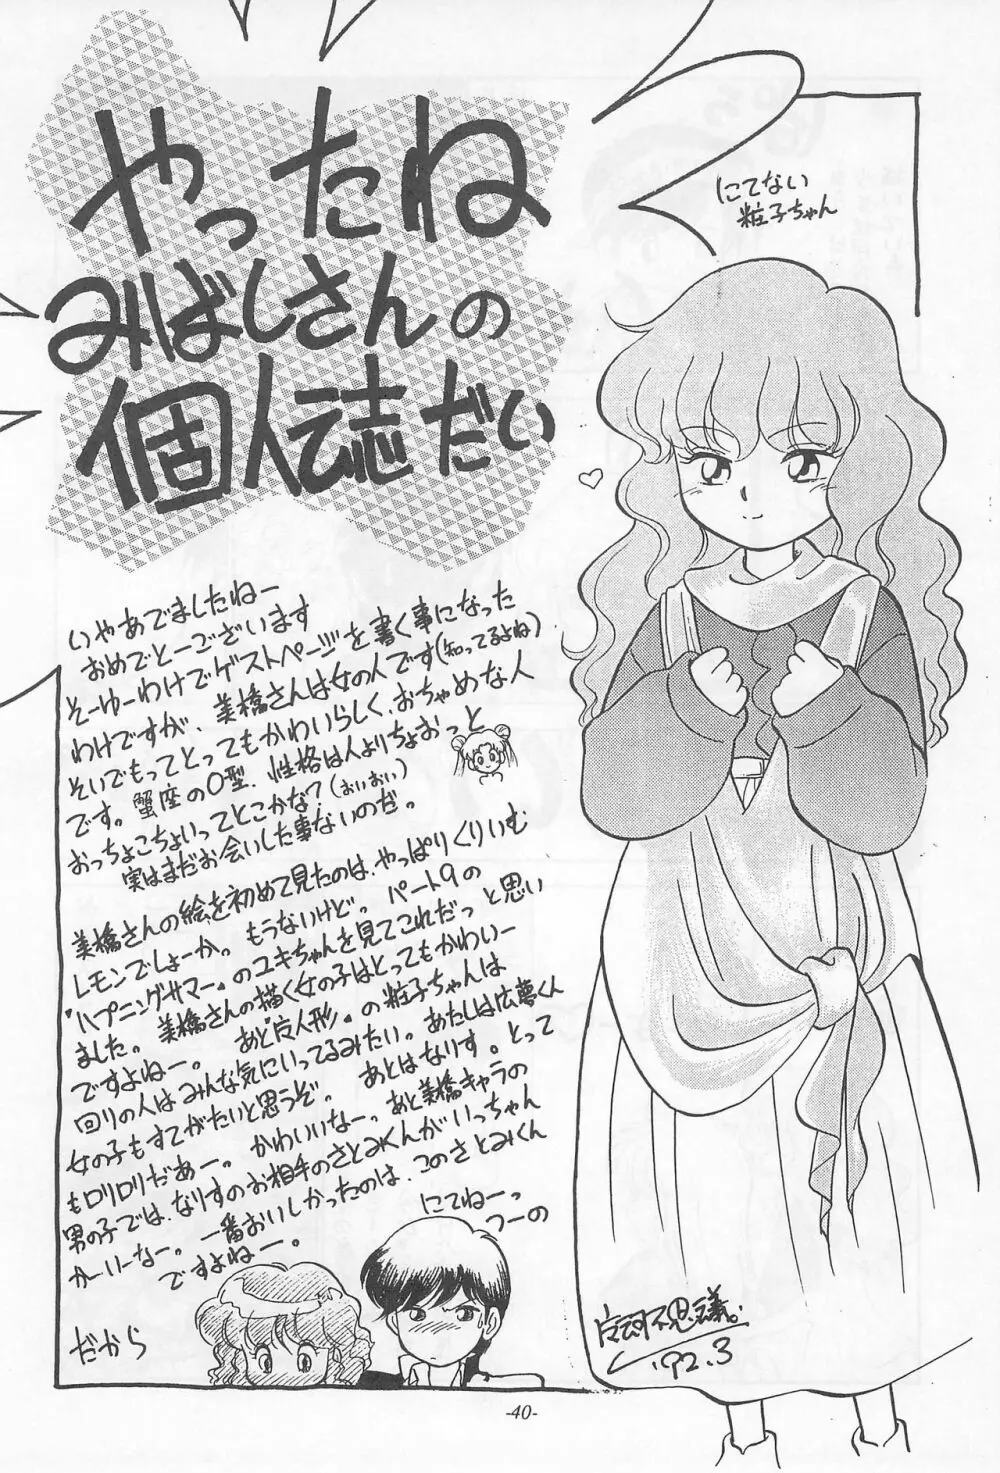 やったね
みばしさんの
個人誌だい
にてない
粧子ちゃん
いやあでましたねー
おめでとーございます
そーゆーわけでゲストページを書く事になった
わけですが、美橋さんは女の人です(知ってるよね)
そいでもってとってもかわいらしく、おちゃめな人
です。蟹座のO型、性格は人よりちょおっと
おっちょこちょいってとこかな?(おいおい)
実はまだお会いした事ないのだ。
美橋さんの絵を初めて見たのは、やっぱりくりいむ
レモンでしょーか。もうないけど。パート9の
「ハプニングサマー」のユキちゃんを見てこれだっと思い
ました。美橋さんの描く女の子はとってもかわいー
ですよねー。あと「人形」の粧子ちゃんは
回りの人はみんな気にいってるみたい。あたしは広夢くん
女の子もすてがたいと思うぞ。あとはなりす。とって
もロリロリだあー。かわいいなー。あと美橋キャラの
男の子では、なりすのお相手のさとみくんがいっちゃん
かーいーなー。一番おいしかったのは、このさとみくん
ですよねー。
にてねーっ
つーの
だから
不思議。
'92.3
-40-